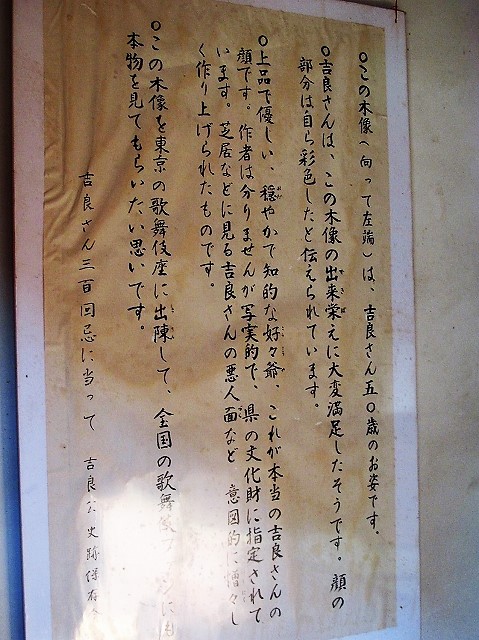 ○この木像(向って左端)は、吉良さん五〇歳のお姿です。
○吉良さんは、この木像の出来栄えに大変満足したそうです。顔の
部分は自ら彩色したと伝えられています。
○上品で優しい、穏やかで知的な好々爺、これが本当の吉良さんの
顔です。作者は分りませんが写実的で、県の文化財に指定されて
います。芝居などに見る吉良さんの悪人面など 意図的に憎々し
く作り上げられたものです。
○この木像を東京の歌舞伎座に出陳して、全国の歌舞伎ファンにも
本物を見てもらいたい思いです。
吉良さん三百回忌に当って 吉良公史跡保存会